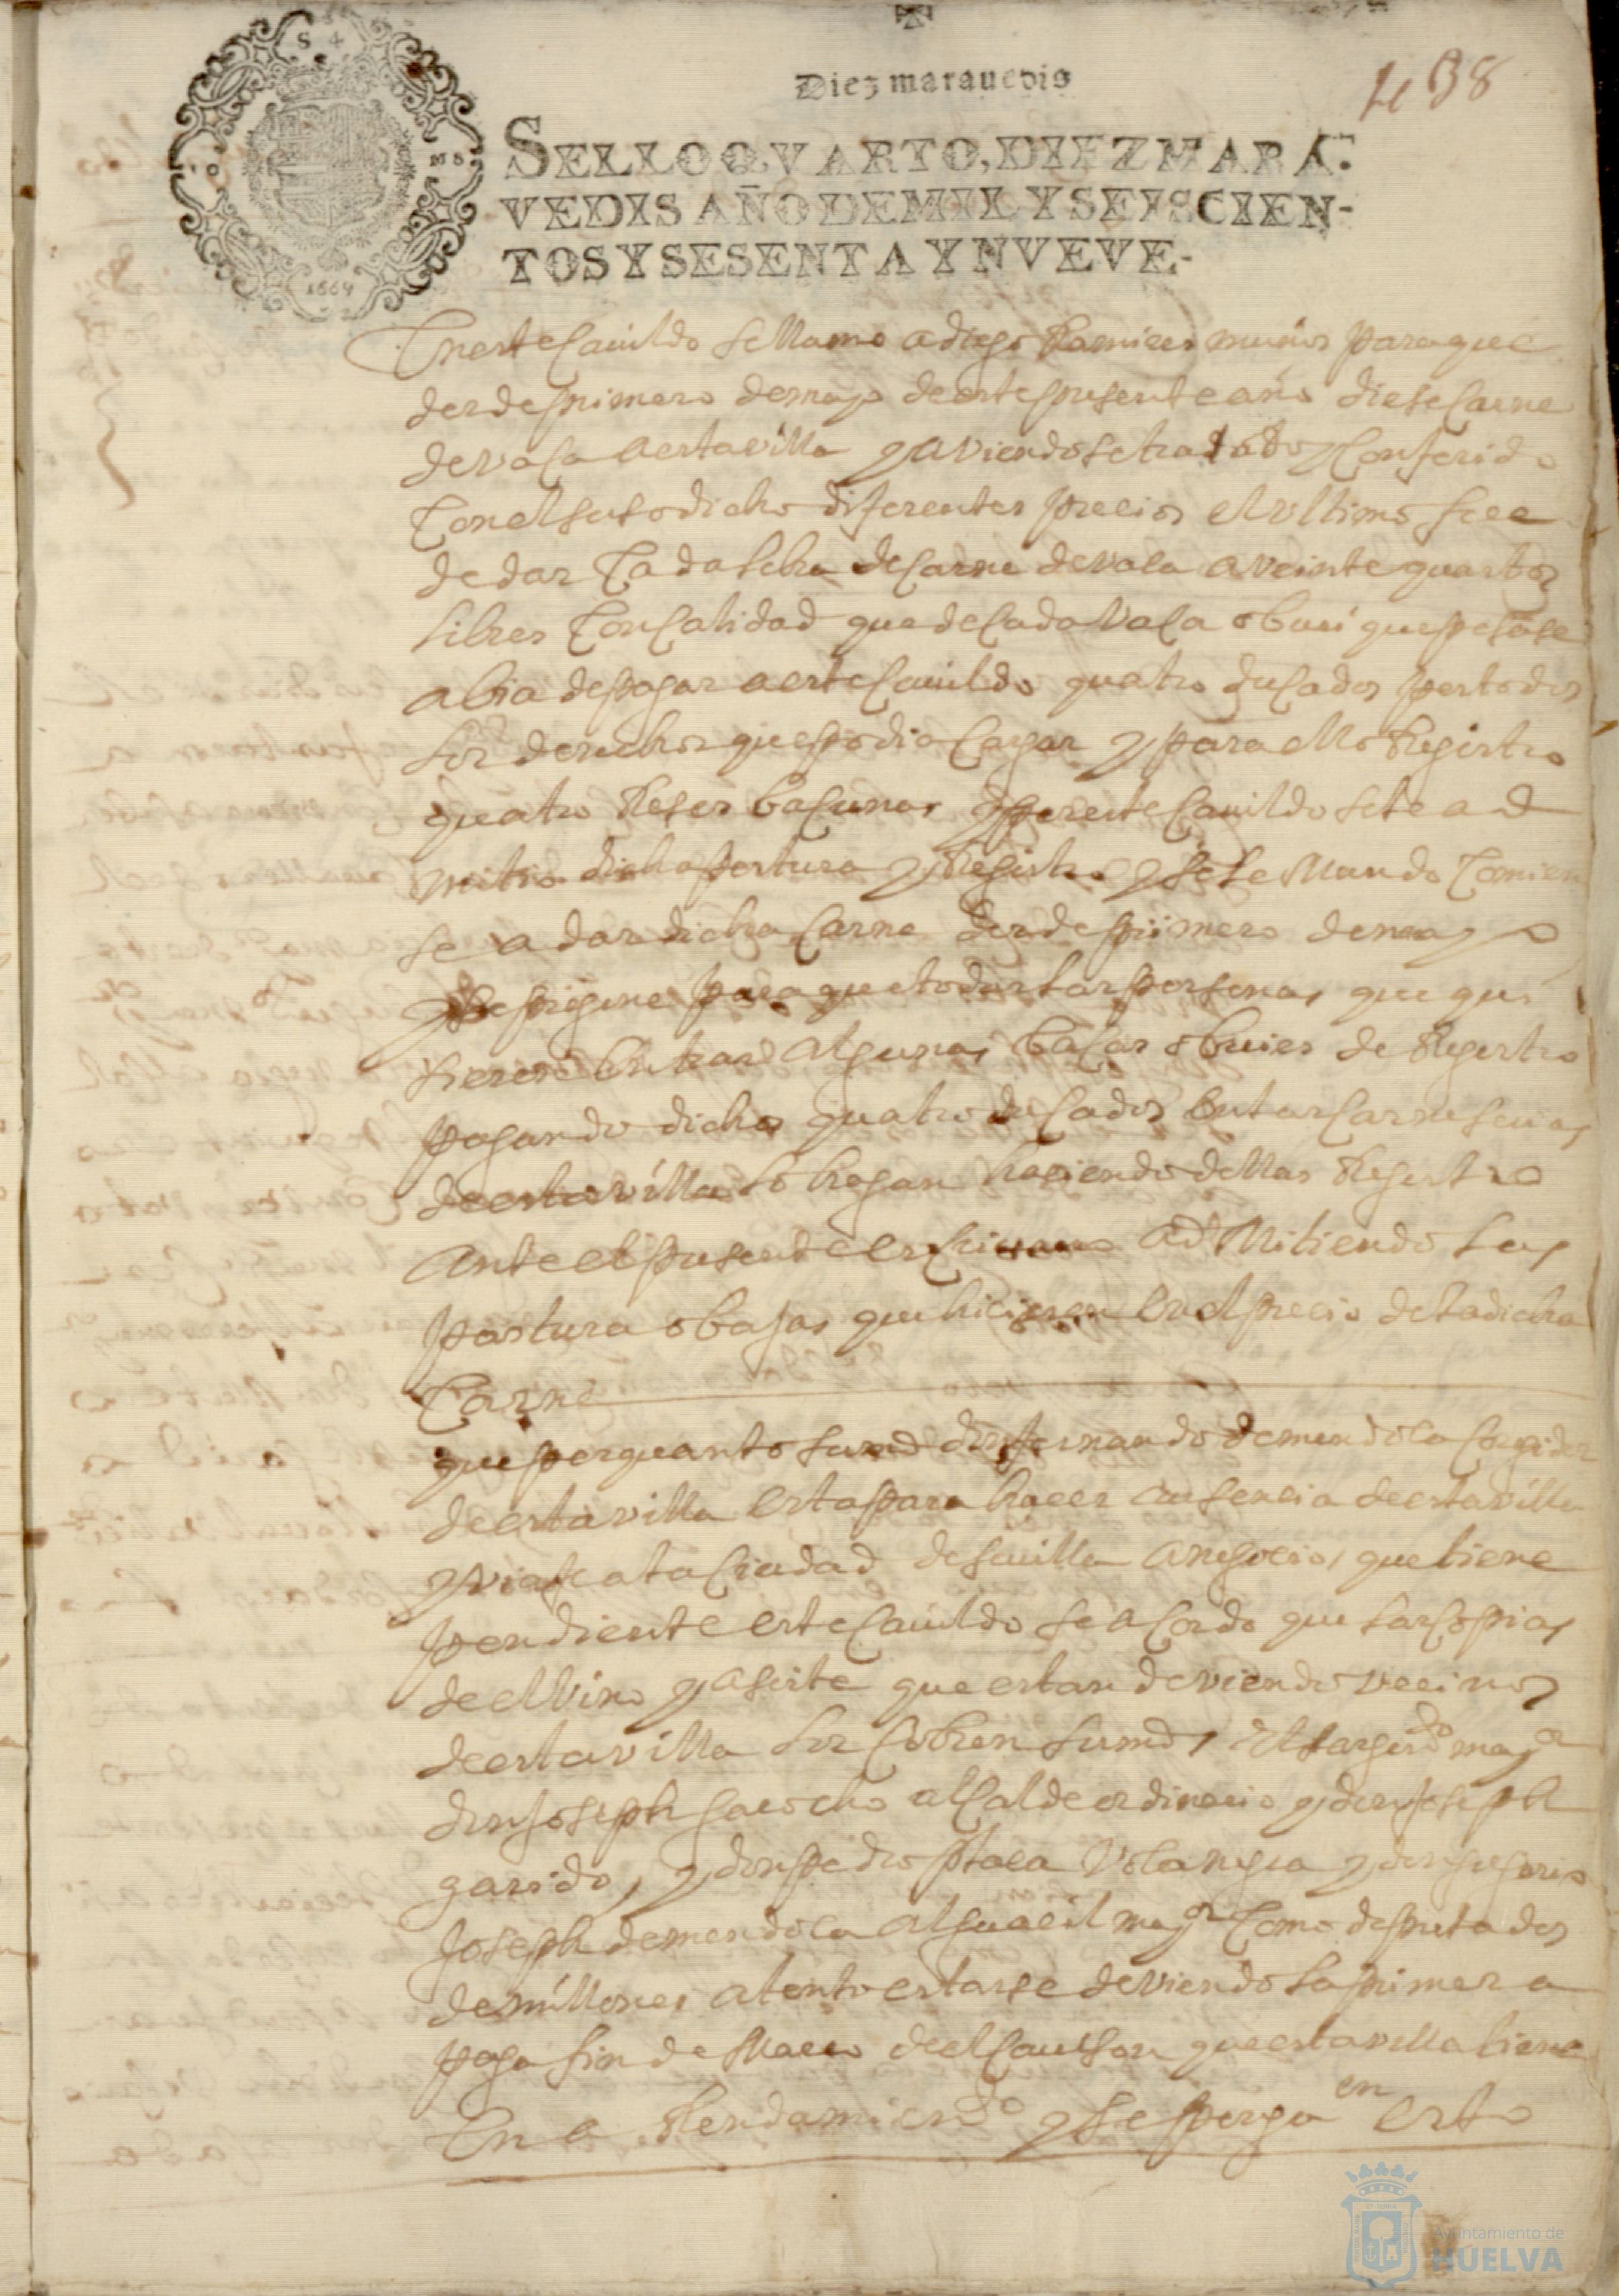 S 4
Diez maravedis
498
SELLO QVARTO, DIEZ MARA-
VEDIS AÑO DE MIL Y SEISCIEN-
TOS Y SESENTA Y NVEVE.-
1669
En este Cauildo se llamo a diego Ramires muños para que
desde primero de mayo de este presente año diese carne
de vaca a esta villa y aviendose tratado y conferido
Con el susodicho diferentes precios el vltimo fue
de dar Cada libra de carne de vaca a veinte quartos
libres Con calidad que de cada vaca o buei que pesase
abia de pagar a este Cauildo quatro ducados por todos
los derechos que podia Causar y para ello Registro
quatro Reses bacunas y por este Cauildo se le ad
mitio dicha postura y Registro y se le Mando Comien
se a dar dicha carne desde primero de mayo
y se pregone para que todas las personas que qui
sieren Entrar algunas bacas o buies de Registro
pagando dichos quatro ducados En las carneserias
de esta villa lo hagan haciendo dellas Registro
ante el presente escrivano admitiendo las
postura o bajas que hicieren En el precio de la dicha
Carne
que por quanto su md don fernando de mendoca Corejidor
de esta villa esta para hacer ausencia de esta villa
y viaje a la Ciudad de seuilla a negocios que tiene
pendiente este Cauildo se acordo que las copias
de el vino y aseite que estan deviendo vecinos
de esta villa los Cobren su md, El sargento mayor
don Joseph alcalde ordinario y don Joseph
garrido, y don pedro y don gregorio
Joseph de mendoca alguacil mayor Como deputados
de millones atento estarse deviendo la primera
paga fin de Março de el que esta villa tiene
En a Rendamiento y se ponga en esto
Ayuntamiento de
HUELVA